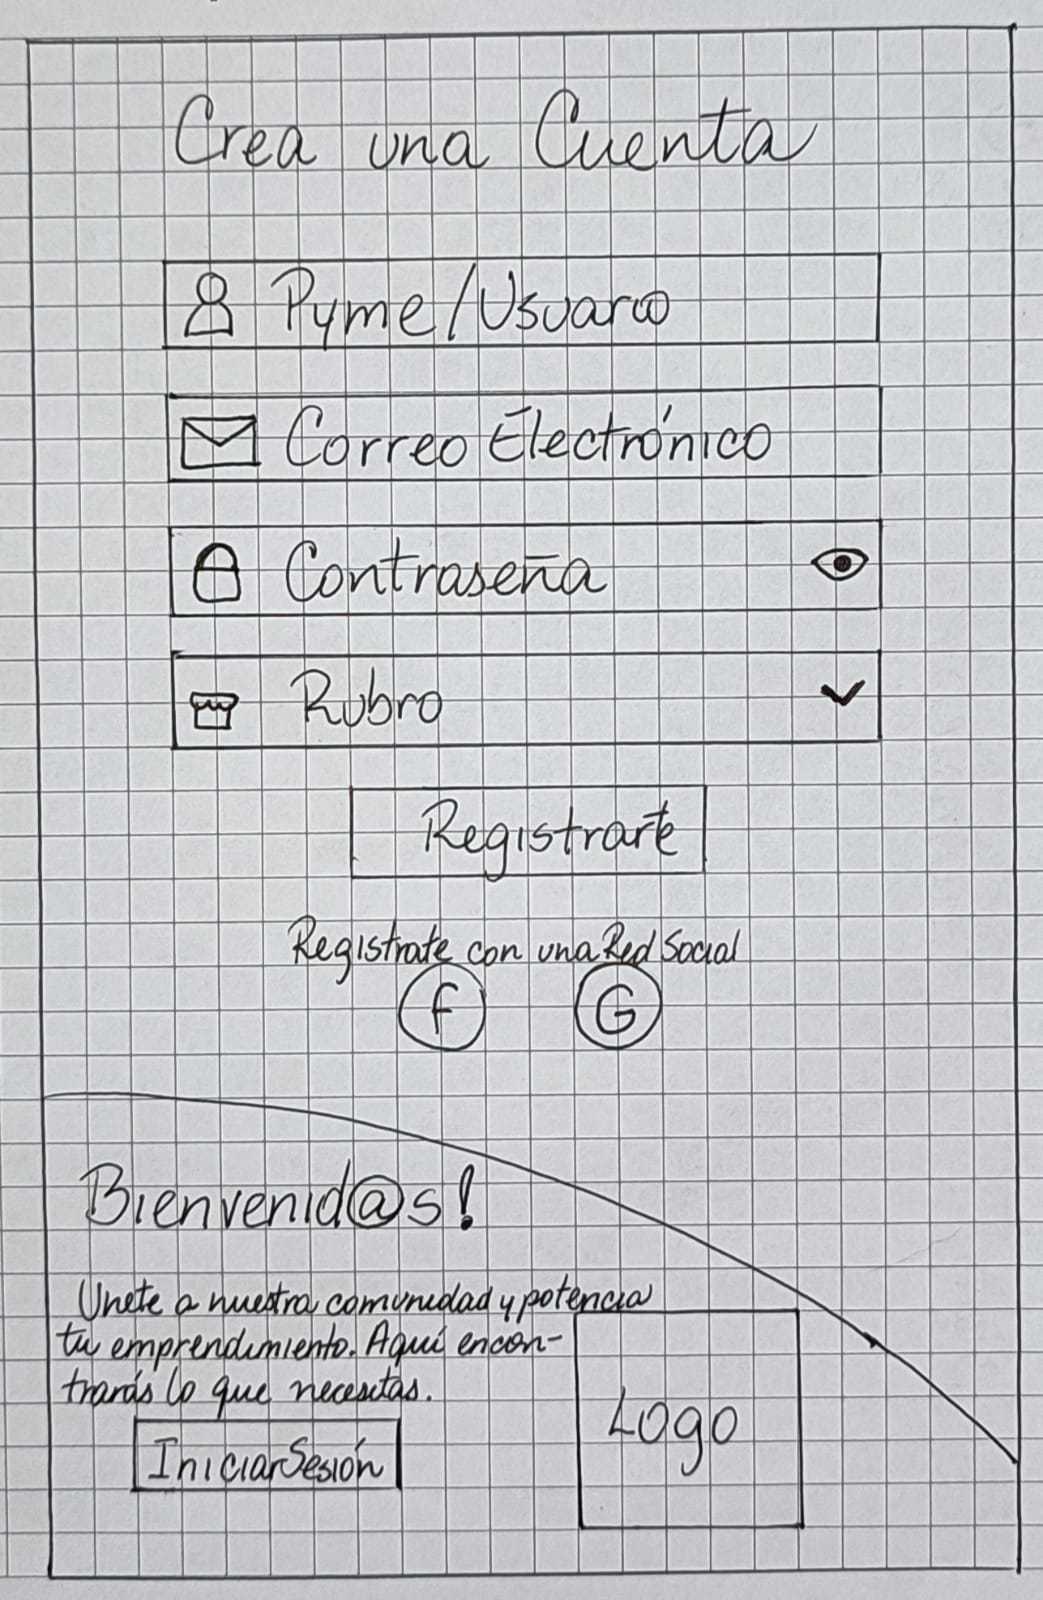 Crea una Cuenta
Pyme/Usuario
Correo Electrónico
Contraseña
Rubro
Registrarte
Registrate con una Red Social
f
G
Bienvenid@s!
Unete a nuestra comunidad y potencia
tu emprendimiento. Aquí encon-
trarás lo que necesitas.
Iniciar Sesión
Logo